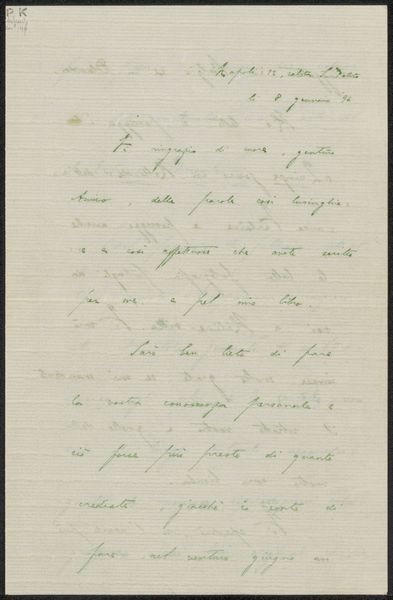 P K
Napoli: 13, salita S.
li 8 gennaio 94
Vi ringrazio di cuore, gentile
Amico, delle parole così lusinghie:
e e così affettuose che avete scritto
per me e pel mio libro.
Sarò ben lieto di fare
la vostra conoscenza personale e
ciò forse più presto di quanto
crediate, giacchè io conto di
fare nel venturo giugno un